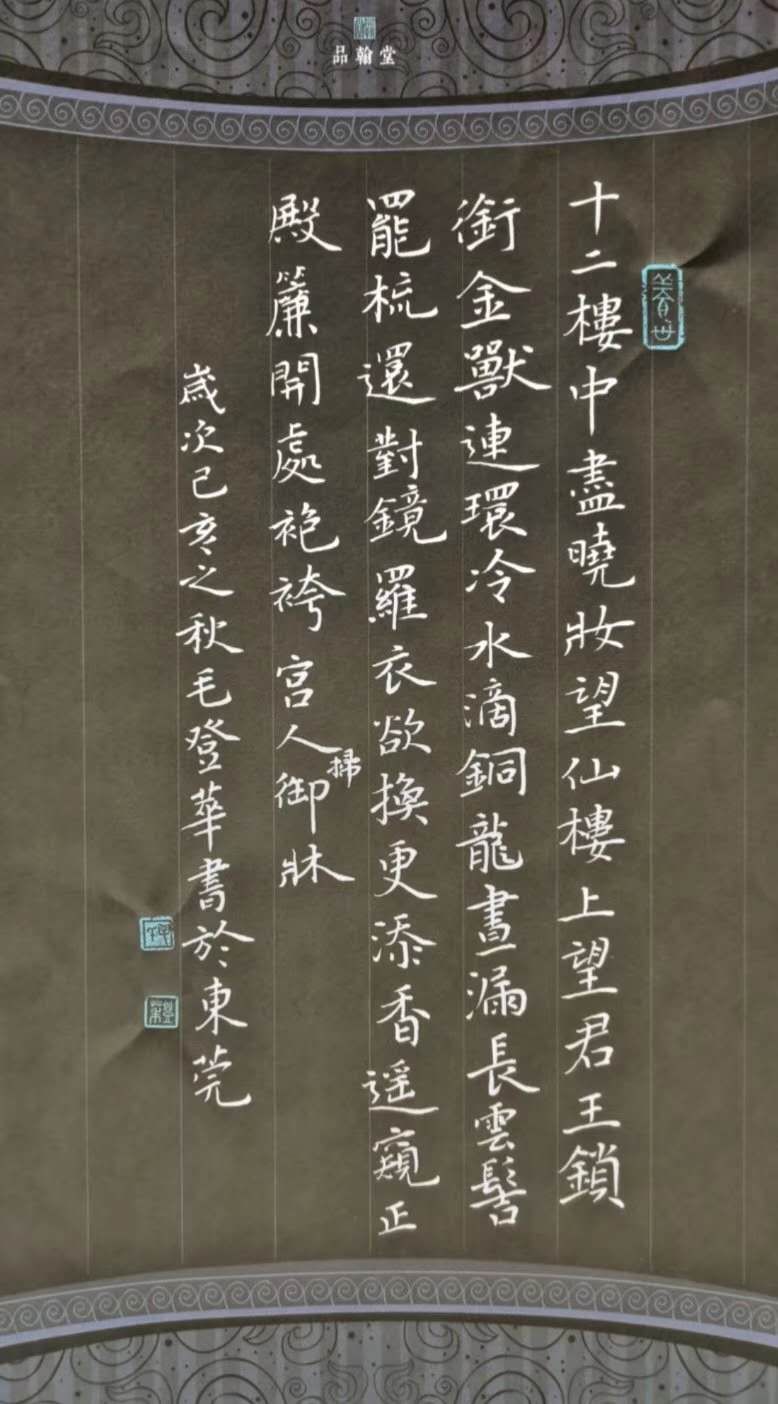 品翰堂
十二樓中盡曉妝望仙樓上望君王鎖
銜金獸連環冷水滴銅龍晝漏長雲髻
罷梳還對鏡羅衣欲換更添香遥窺正
殿簾開處袍袴宮人掃御牀
歲次己亥之秋毛登華書於東莞